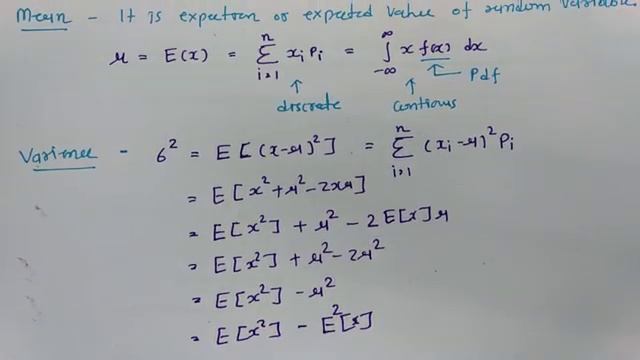 Mean - It is expectron or expected value of random variable.
μ = E(x) = n∑i=1 xi Pi = ∞∫-∞ x f(x) dx
↑ discrete ↑ contious ← Pdf
Varience - σ² = E[(x-μ)²] = n∑i=1 (xi-μ)² Pi
= E[x²+μ²-2xμ]
= E[x²] + μ² - 2E[x]μ
= E[x²] + μ² - 2μ²
= E[x²] - μ²
= E[x²] - E²[x]